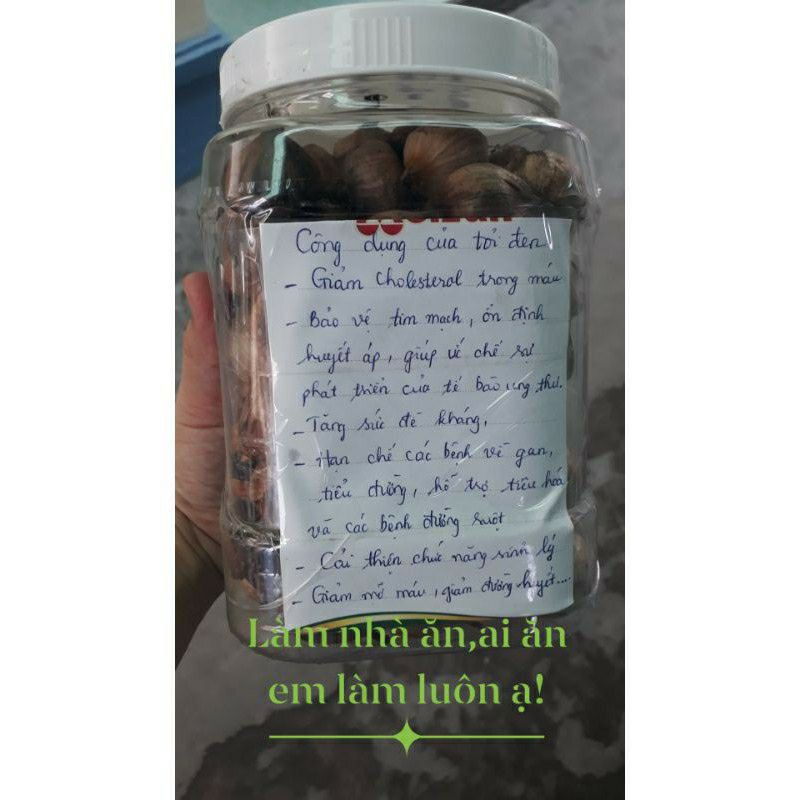 Công dụng của tỏi đen
- Giảm cholesterol trong máu
- Bảo vệ tim mạch, ổn định
huyết áp, giúp ức chế sự
phát triển của tế bào ung thư.
- Tăng sức đề kháng,
- Hạn chế các bệnh về gan,
tiểu đường, hỗ trợ tiêu hóa
và các bệnh đường ruột
- Cải thiện chức năng sinh lý
- Giảm mỡ máu, giảm đường huyết....
Lằm nhà ăn,ai ăn
em làm luôn ạ!